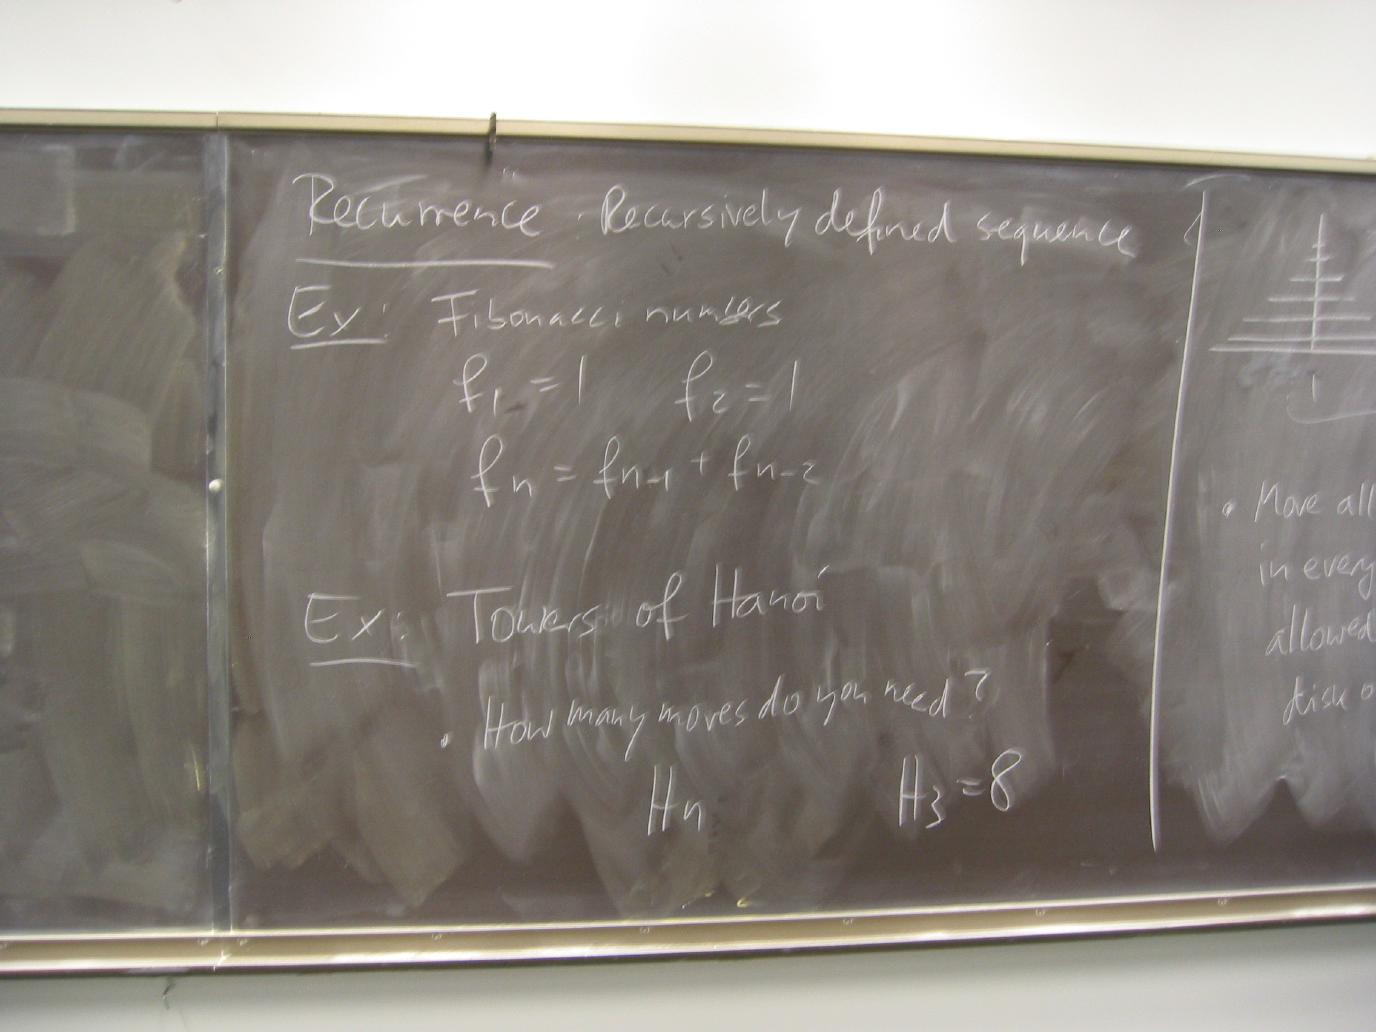 Recurrence · Recursively defined sequence
Ex: Fibonacci numbers
f₁ = 1 f₂ = 1
fₙ = fₙ₋₁ + fₙ₋₂
Ex: Towers of Hanoi
• How many moves do you need?
Hₙ H₃ = 8
1
• Move all
in every
allowed
disk o